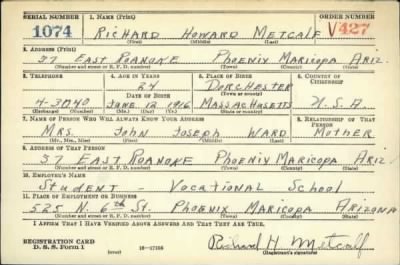 SERIAL NUMBER 1. NAME (Print) ORDER NUMBER
1074 RICHARD HOWARD METCALF V427
(First) (Middle) (Last)
2. ADDRESS (Print)
37 EAST ROANOKE PHOENIX MARICOPA ARIZ.
(Number and street or R. F. D. number) (Town) (County) (State)
3. TELEPHONE 4. AGE IN YEARS 5. PLACE OF BIRTH 6. COUNTRY OF CITIZENSHIP
24 DORCHESTER
DATE OF BIRTH (Town or county)
4-3040 JUNE 12 1916 MASSACHUSETTS U.S.A.
(Exchange) (Number) (Mo.) (Day) (Yr.) (State or country)
7. NAME OF PERSON WHO WILL ALWAYS KNOW YOUR ADDRESS 8. RELATIONSHIP OF THAT PERSON
MRS. JOHN JOSEPH WARD MOTHER
(Mr., Mrs., Miss) (First) (Middle) (Last)
9. ADDRESS OF THAT PERSON
37 EAST ROANOKE PHOENIX MARICOPA ARIZ.
(Number and street or R. F. D. number) (Town) (County) (State)
10. EMPLOYER'S NAME
STUDENT - VOCATIONAL SCHOOL
11. PLACE OF EMPLOYMENT OR BUSINESS
525 N. 6th St. PHOENIX MARICOPA ARIZONA
(Number and street or R. F. D. number) (Town) (County) (State)
I AFFIRM THAT I HAVE VERIFIED ABOVE ANSWERS AND THAT THEY ARE TRUE.
REGISTRATION CARD
D. S. S. Form 1 16-17105 Richard H. Metcalf
(Registrant's signature)